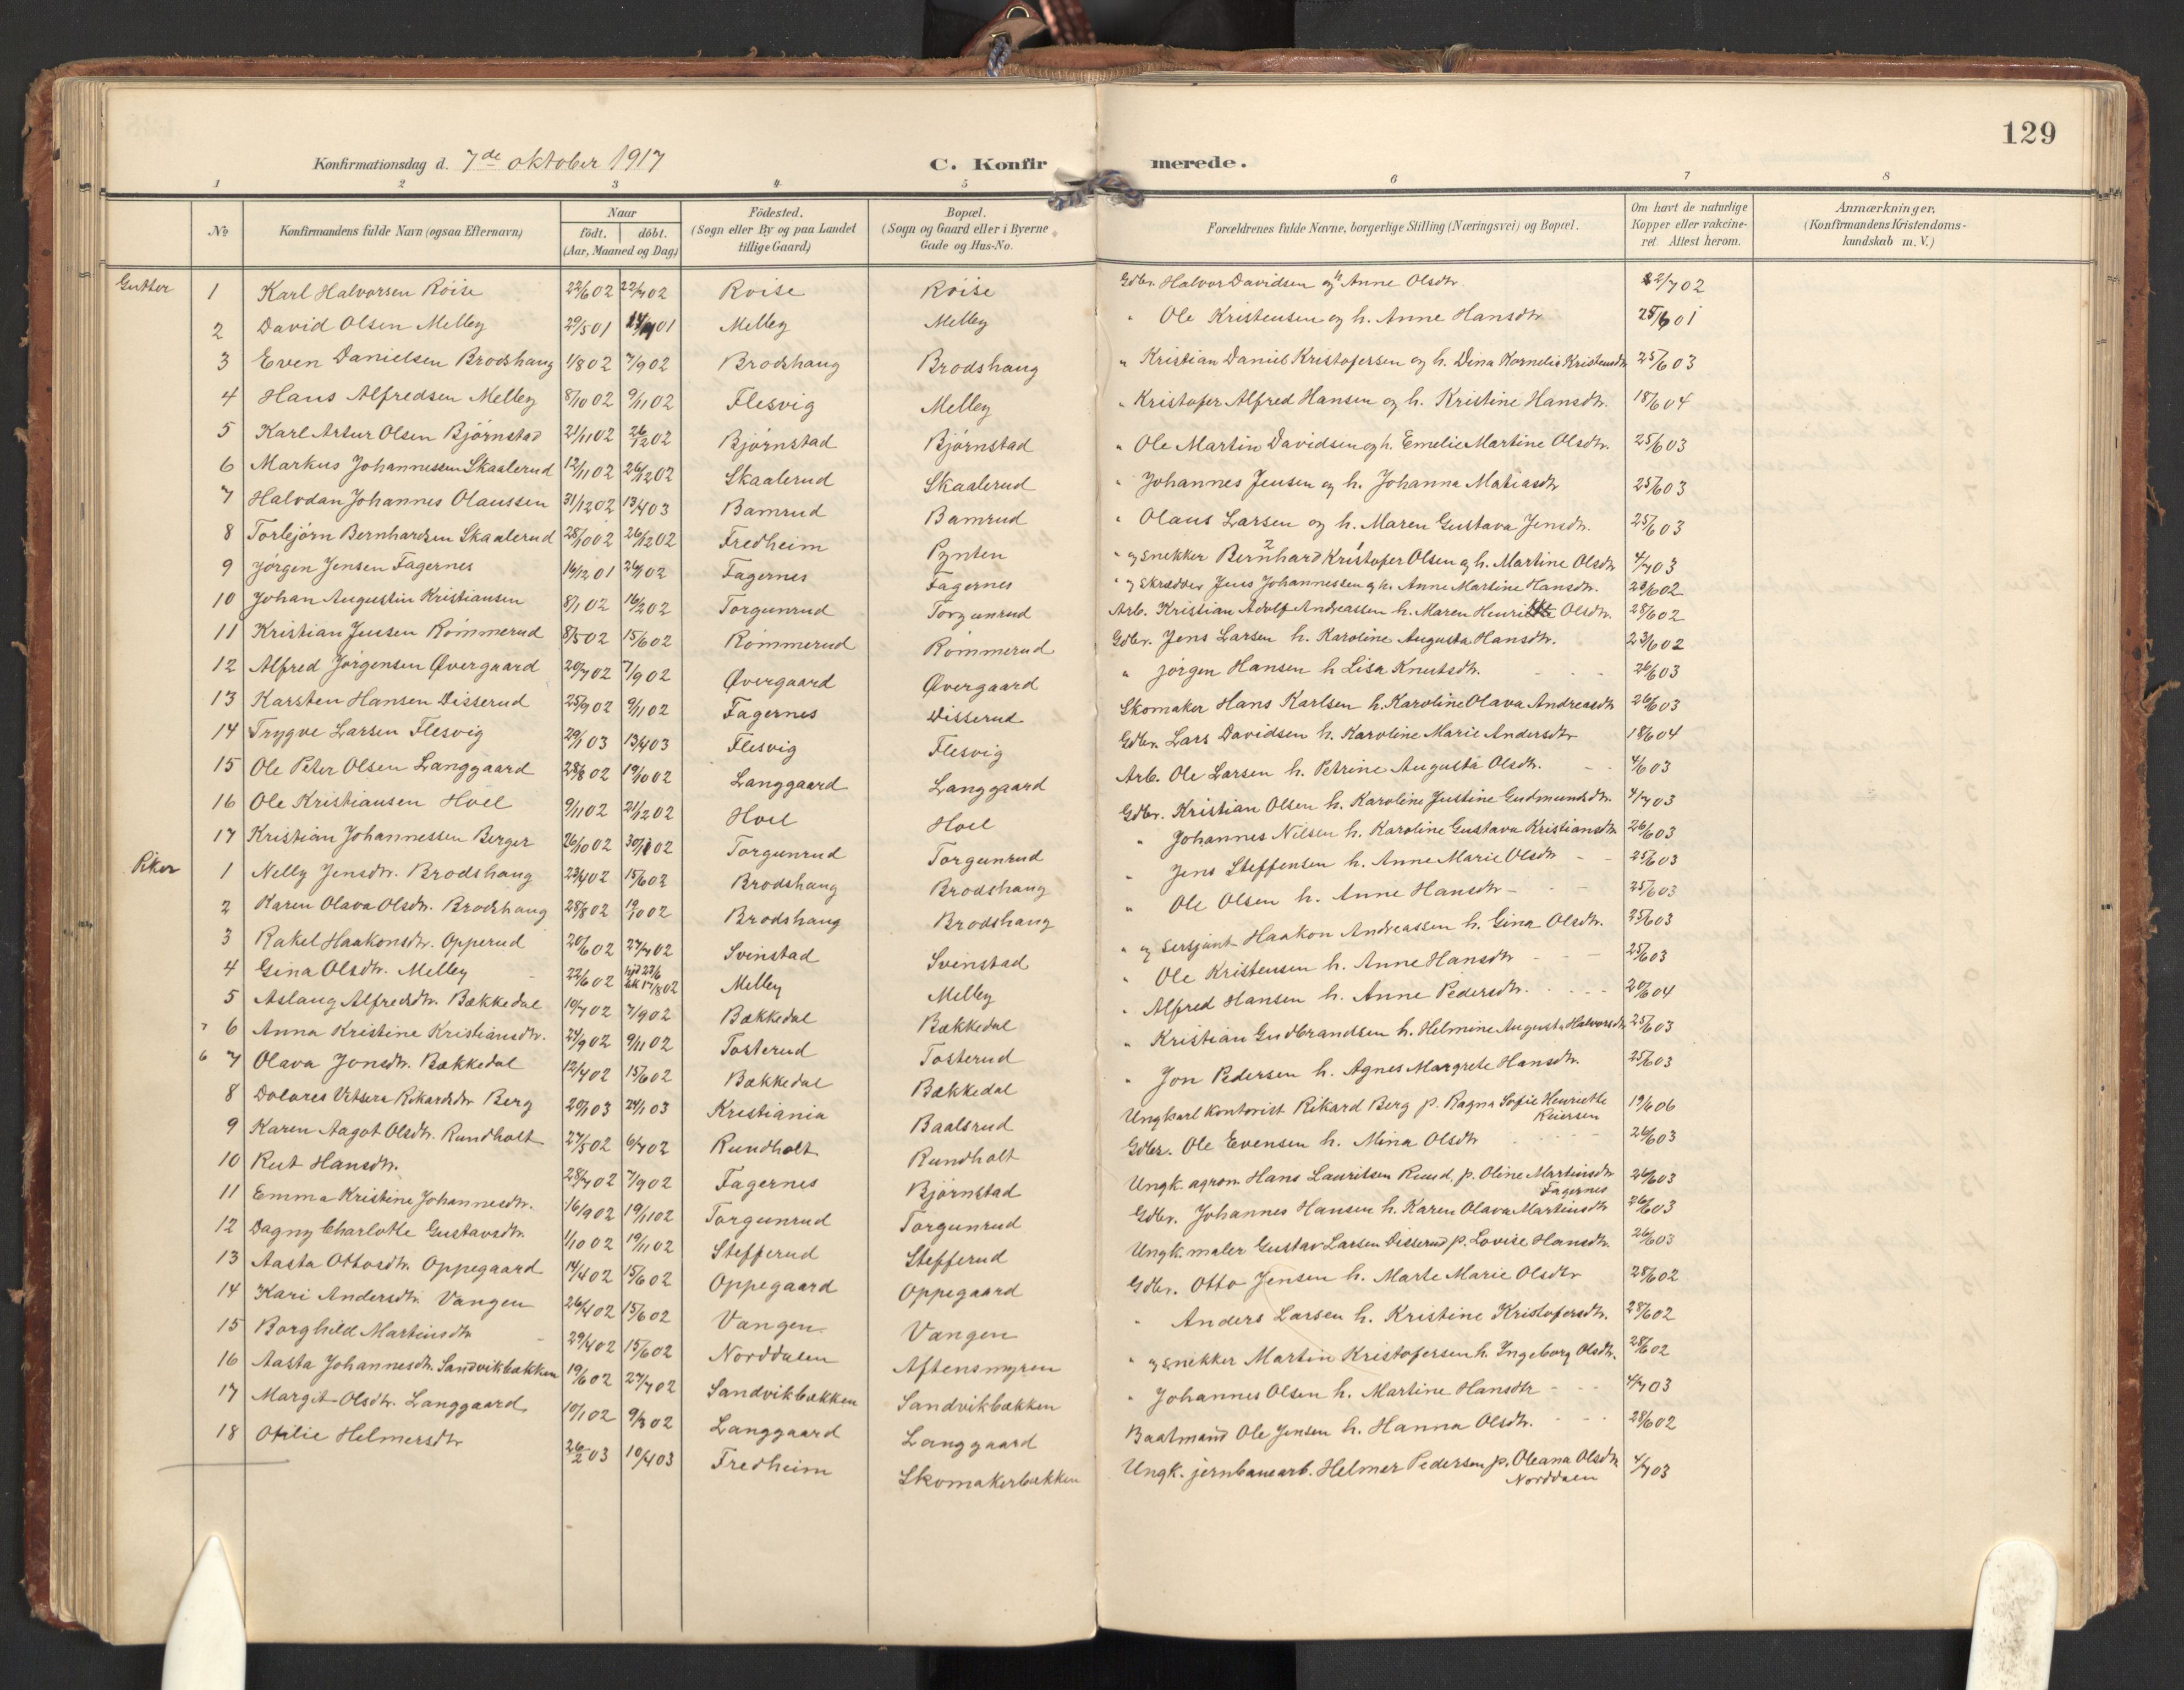 129
Konfirmationsdag d. 7de oktober 1917 C. Konfirmerede.
1 2 3 4 5 6 7 8
№ Konfirmandens fulde Navn (ogsaa Efternavn) Naar født. døbt. (Aar, Maaned og Dag) Fødested. (Sogn eller By og paa Landet tillige Gaard) Bopæl. (Sogn og Gaard eller i Byerne Gade og Hus-No. Forældrenes fulde Navne, borgerlige Stilling (Næringsvei) og Bopæl. Om havt de naturlige Kopper eller vakcineret Attest herom. Anmærkninger. (Konfirmandens Kristendomskundskab m. V.)
Gutter 1 Karl Halvorsen Røise 22/6 02 22/7 02 Røise Røise Gdbr. Halvor Davidsen og h. Anne Olsdtr. 2/7 02
2 David Olsen Melleg 29/5 01 14/7 01 Melleg Melleg " Ole Kristensen og h. Anne Hansdtr 28/6 01
3 Even Danielsen Brodshaug 1/8 02 7/9 02 Brodshaug Brodshaug " Kristian Daniel Kristofersen og h. Dina Kornelia Kristensdtr 25/6 03
4 Hans Alfredsen Melleg 8/10 02 9/11 02 Flesvig Melleg " Kristofer Alfred Hansen og h. Kristine Hansdtr. 18/6 04
5 Karl Artur Olsen Bjørnstad 21/11 02 26/12 02 Bjørnstad Bjørnstad " Ole Martin Davidsen og h. Emelie Martine Olsdtr. 25/6 03
6 Markus Johannessen Skaalerud 12/11 02 26/12 02 Skaalerud Skaalerud " Johannes Jensen og h. Johanna Matiasdtr 25/6 03
7 Halvdan Johannes Olaussen 31/12 02 13/4 03 Bamrud Bamrud " Olaus Larsen og h. Maren Gustava Jensdtr. 25/6 03
8 Torbjørn Bernhardsen Skaalerud 28/10 02 26/12 02 Fredheim Pynten " og snekker Bernhard Kristofer Olsen og h. Martine Olsdtr 4/7 03
9 Jørgen Jensen Fagernes 16/12 01 26/1 02 Fagernes Fagernes " og skrædder Jens Johannessen og h. Anne Martine Hansdtr. 28/6 02
10 Johan Augustin Kristiansen 8/1 02 16/2 02 Torgunrud Torgunrud Arb. Kristian Adolf Andreassen h. Maren Henriette Olsdtr. 28/6 02
11 Kristian Jensen Rømmerud 8/5 02 15/6 02 Rømmerud Rømmerud Gdbr. Jens Larsen h. Karoline Augusta Hansdtr. 23/6 02
12 Alfred Jørgensen Øvergaard 20/7 02 7/9 02 Øvergaard Øvergaard " Jørgen Hansen h Lisa Knutsdtr. 26/6 03
13 Karsten Hansen Disserud 25/9 02 9/11 02 Fagernes Disserud Skomaker Hans Karlsen h. Karoline Olava Andreasdtr 26/6 03
14 Trygve Larsen Flesvig 29/1 03 13/4 03 Flesvig Flesvig Gdbr. Lars Davidsen h. Karoline Marie Andersdtr 18/6 04
15 Ole Peter Olsen Langgaard 28/8 02 19/10 02 Langgaard Langgaard Arb. Ole Larsen h. Petrine Augusta Olsdtr. 4/6 03
16 Ole Kristiansen Hoel 9/11 02 21/12 02 Hoel Hoel Gdbr. Kristian Olsen h. Karoline Justine Gudmundsdtr. 4/7 03
17 Kristian Johannessen Berger 26/10 02 30/11 02 Torgunrud Torgunrud " Johannes Nilsen h. Karoline Gustava Kristiansdtr 26/6 03
Piker 1 Nelly Jensdtr. Brodshaug 22/4 02 15/6 02 Brodshaug Brodshaug " Jens Steffensen h. Anne Marie Olsdtr 25/6 03
2 Karen Olava Olsdtr. Brodshaug 28/8 02 19/10 02 Brodshaug Brodshaug " Ole Olsen h. Anne Hansdtr 25/6 03
3 Rakel Haakonsdtr. Opperud 20/6 02 27/7 02 Svinstad Svinstad " og sersjant Haakon Andreassen h. Gina Olsdtr. 25/6 03
4 Gina Olsdtr. Melleg 22/6 02 hjd 23/6 bk 17/8 02 Melleg Melleg " Ole Kristensen h. Anne Hansdtr 25/6 03
5 Aslaug Alfredsdtr. Bækkedal 10/7 02 7/9 02 Bækkedal Bækkedal " Alfred Hansen h. Anne Pedersdtr. 20/6 04
7 6 Anna Kristine Kristiansdtr. 24/9 02 9/11 02 Tosterud Tosterud " Kristian Gudbrandsen h. Helmine Augusta Halvorsdtr 25/6 03
6 7 Olava Jonsdtr. Bækkedal 12/4 02 15/6 02 Bækkedal Bækkedal " Jon Pedersen h. Agnes Margrete Hansdtr. 25/6 03
8 Dolores Rikardsdtr Berg 20/1 03 24/1 03 Kristiania Baalsrud Ungkarl kontorist Rikard Berg p. Ragna Sofie Henriette Reiersen 19/6 06
9 Karen Aagot Olsdtr. Rundholt 27/5 02 6/7 02 Rundholt Rundholt Gdbr. Ole Evensen h. Mina Olsdtr 26/6 03
10 Rut Hansdtr. 28/7 02 7/9 02 Fagernes Bjørnstad Ungk. agron. Hans Lauritsen Ruud, p. Oline Martinsdtr Fagernes 26/6 03
11 Emma Kristine Johannesdtr. 16/9 02 19/11 02 Torgunrud Torgunrud Gdbr. Johannes Hansen h. Karen Olava Martinsdtr 26/6 03
12 Dagny Charlotte Gustavsdtr. 1/10 02 19/11 02 Stefferud Stefferud Ungk. maler Gustav Larsen Disserud p. Lovise Hansdtr. 26/6 03
13 Aasta Ottosdtr. Oppegaard 14/4 02 15/6 02 Oppegaard Oppegaard Gdbr. Otto Jensen h. Marte Marie Olsdtr 28/6 02
14 Kari Andersdtr. Vangen 26/4 02 15/6 02 Vangen Vangen " Anders Larsen h. Kristine Kristofersdtr. 28/6 02
15 Borghild Martinsdtr 29/4 02 15/6 02 Norddalen Aftensmyren " og snekker Martin Kristofersen h. Ingeborg Olsdtr. 28/6 02
16 Aasta Johannesdtr. Sandvikbakken 19/6 02 27/7 02 Sandvikbækken Sandvikbækken " Johannes Olsen h. Martine Hansdtr 4/7 03
17 Margit Olsdtr. Langgaard 10/1 02 9/3 02 Langgaard Langgaard Baatmand Ole Jensen h. Hanna Olsdtr. 28/6 02
18 Otilie Helmersdtr 26/2 03 10/4 03 Fredheim Skomakerbækken Ungk. jernbanearb. Helmer Pedersen p. Oleana Olsdtr Norddalen 4/7 03